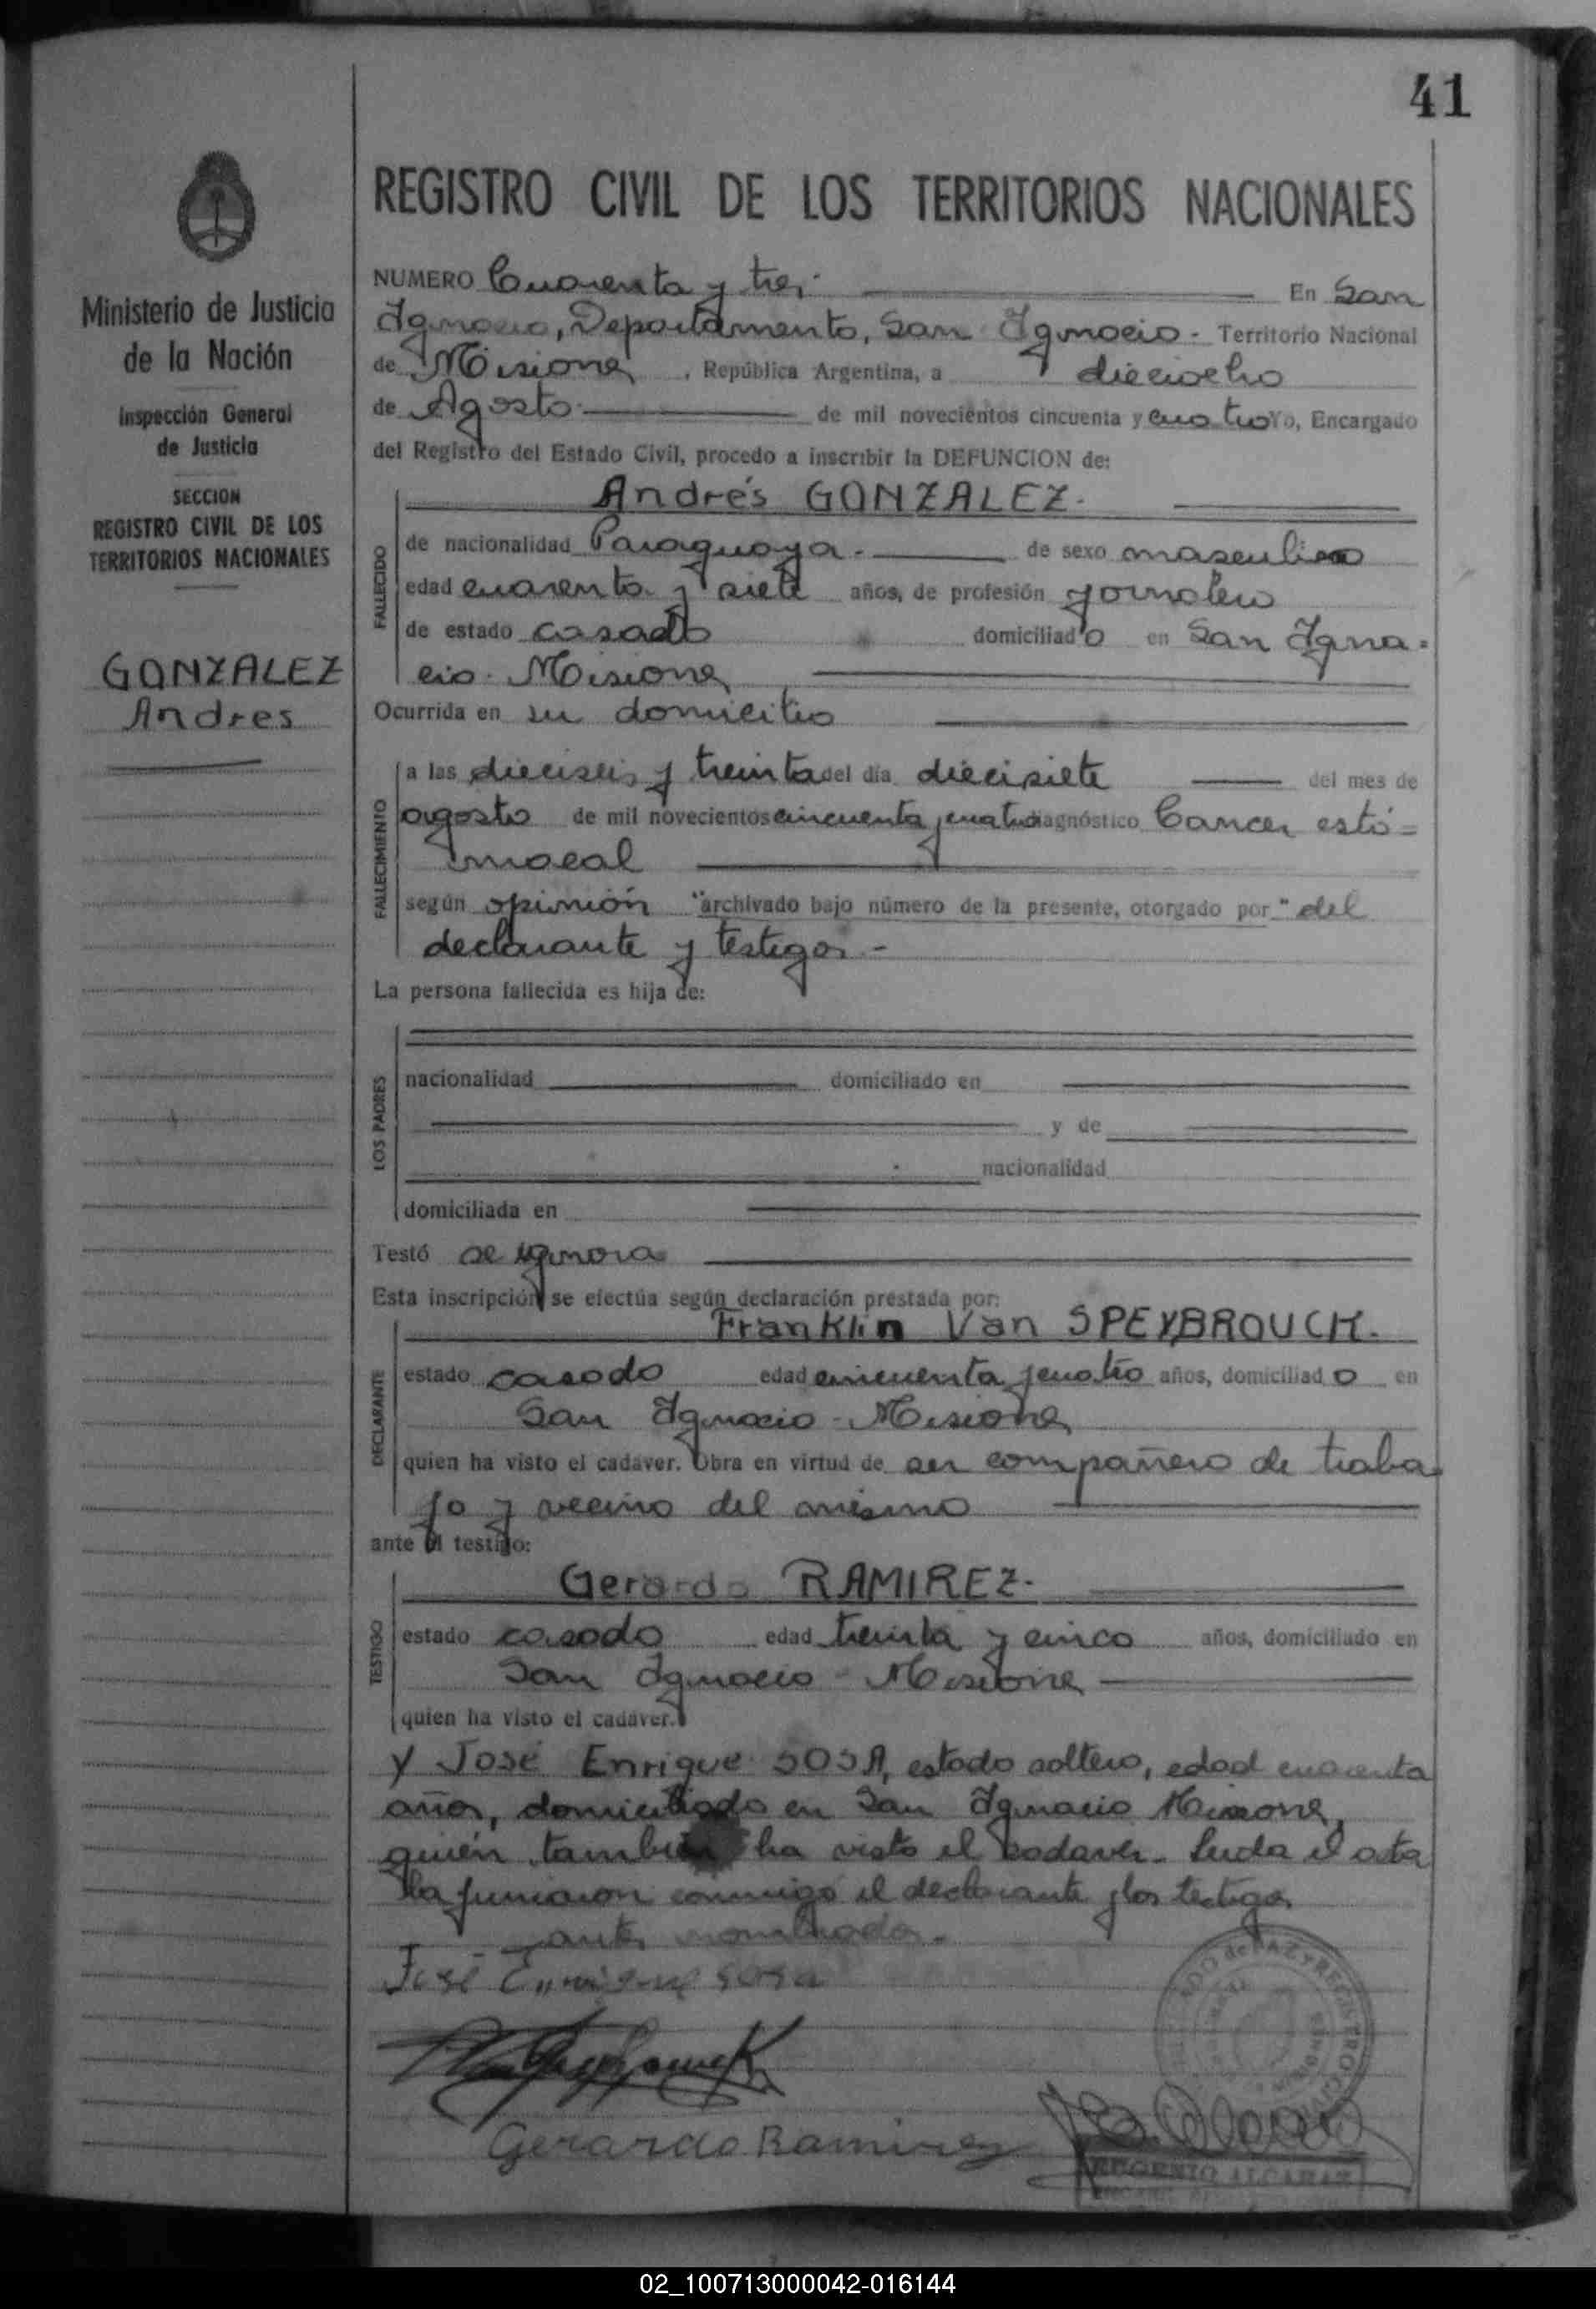 41
REGISTRO CIVIL DE LOS TERRITORIOS NACIONALES
Ministerio de Justicia
de la Nación
Inspección General
de Justicia
SECCION
REGISTRO CIVIL DE LOS
TERRITORIOS NACIONALES
GONZALEZ
Andres
NUMERO Cuarenta y tres En San
Ignacio, Departamento, San Ignacio - Territorio Nacional
de Misiones, República Argentina, a dieciocho
de Agosto de mil novecientos cincuenta y cuatro Yo, Encargado
del Registro del Estado Civil, procedo a inscribir la DEFUNCION de:
Andrés GONZALEZ.
FALLECIDO
de nacionalidad Paraguaya. de sexo masculino
edad cuarenta y siete años, de profesión jornalero
de estado casado domiciliado en San Igna=
cio. Misiones
Ocurrida en su domicilio
FALLECIMIENTO
a las dieciseis y treinta del día diecisiete del mes de
agosto de mil novecientos cincuenta y cuatro diagnóstico Cancer estó=
macal
según opinión "archivado bajo número de la presente, otorgado por" del
declarante y testigos.-
La persona fallecida es hija de:
LOS PADRES
nacionalidad domiciliado en
y de
nacionalidad
domiciliada en
Testó se ignora
Esta inscripción se efectúa según declaración prestada por:
Franklin Van SPEYBROUCK.
DECLARANTE
estado casado edad cincuenta y cuatro años, domiciliado en
San Ignacio - Misiones
quien ha visto el cadáver. Obra en virtud de ser compañero de traba
jo y vecino del mismo
ante el testigo:
Gerardo RAMIREZ.
TESTIGO
estado casado edad treinta y cinco años, domiciliado en
San Ignacio - Misiones
quien ha visto el cadáver.
y José Enrique SOSA, estado soltero, edad cuarenta
años, domiciliado en San Ignacio Misiones,
quién también ha visto el cadaver. Leida el acta
la firmaron conmigo el declarante y los testigos
antes nombrados.
José Enrique Sosa
Gerardo Ramirez
EUGENIO ALCARAZ
02_100713000042-016144